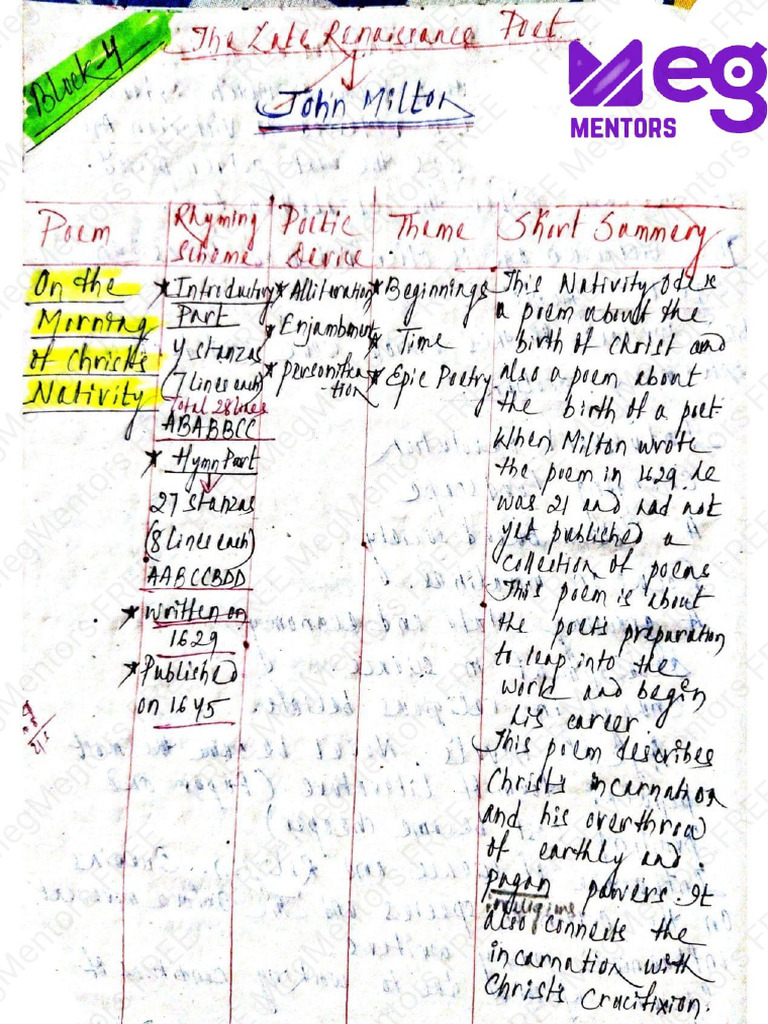 Block-4
The Late Renaissance Poet
John Milton
Meg
MENTORS
Poem
Rhyming
Scheme
Poetic
Device
Theme
Short Summery
On the
Morning
of Christs
Nativity
* Introductory
Part
4 stanzas
(7 lines each)
Total 28 lines
ABABBCC
* Hymn Part
27 stanzas
(8 lines each)
AABCCBDD
* written on
1629
* Published
on 1645
* Alliteration
* Enjambment
* personification
* Beginnings
* Time
* Epic Poetry
This Nativity Ode is
a poem about the
birth of Christ and
also a poem about
the birth of a poet
When Milton wrote
the poem in 1629. he
was 21 and had not
yet published a
collection of poems
This poem is about
the poets preparation
to leap into the
world and begin
his career.
This poem describes
Christs incarnation
and his overthrow
of earthly and
pagan powers. It
religions
also connects the
incarnation with
Christs Crucifixion.